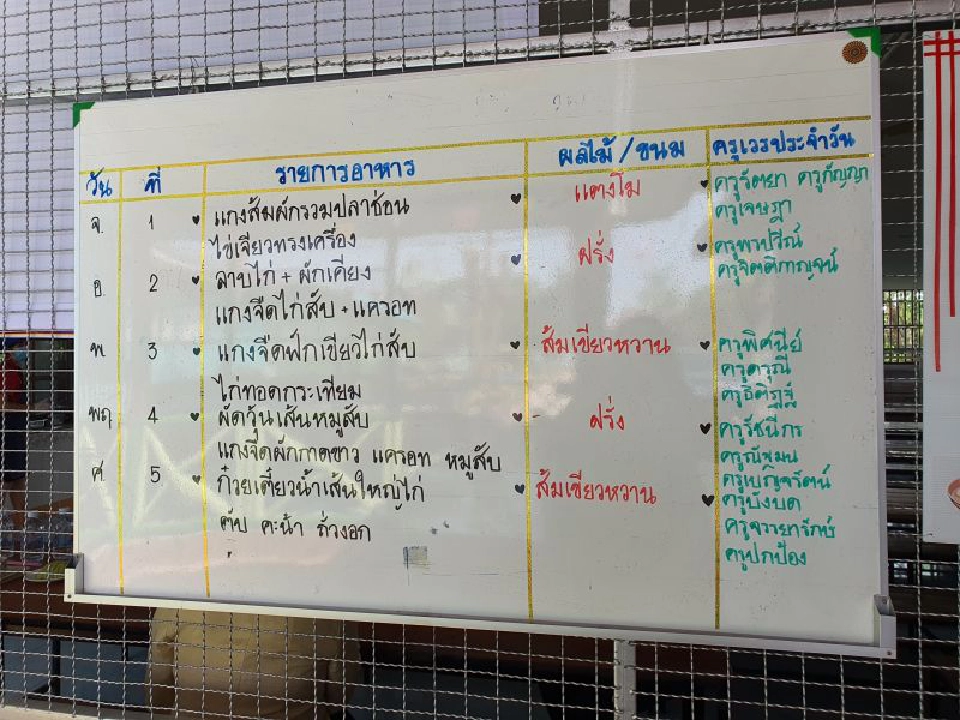 วัน ที่ รายการอาหาร ผลไม้/ขนม ครูเวรประจำวัน
จ. 1 แกงส้มผักรวมปลาช่อน แตงโม ครูรัตยา ครูกัญญา
ไข่เจียวทรงเครื่อง ครูเจษฎา
อ. 2 ลาบไก่ + ผักเคียง ฝรั่ง ครูพาปวีณ์
แกงจืดไก่สับ + แครอท ครูจิตติกาญจน์
พ. 3 แกงจืดฟักเขียวไก่สับ ส้มเขียวหวาน ครูพิศนีย์
ไก่ทอดกระเทียม ครูดรุณี
ครูธิติฏฐ์
พฤ 4 ผัดวุ้นเส้นหมูสับ ฝรั่ง ครูรัชนีกร
แกงจืดผักกาดขาว แครอท หมูสับ ครูณัชมน
ศ. 5 ก๋วยเตี๋ยวน้ำเส้นใหญ่ไก่ ส้มเขียวหวาน ครูเบญจรัตน์
ครูบังบด
ตับ คะน้า ถั่วงอก ครูจรรยารักษ์
ครูปกป้อง